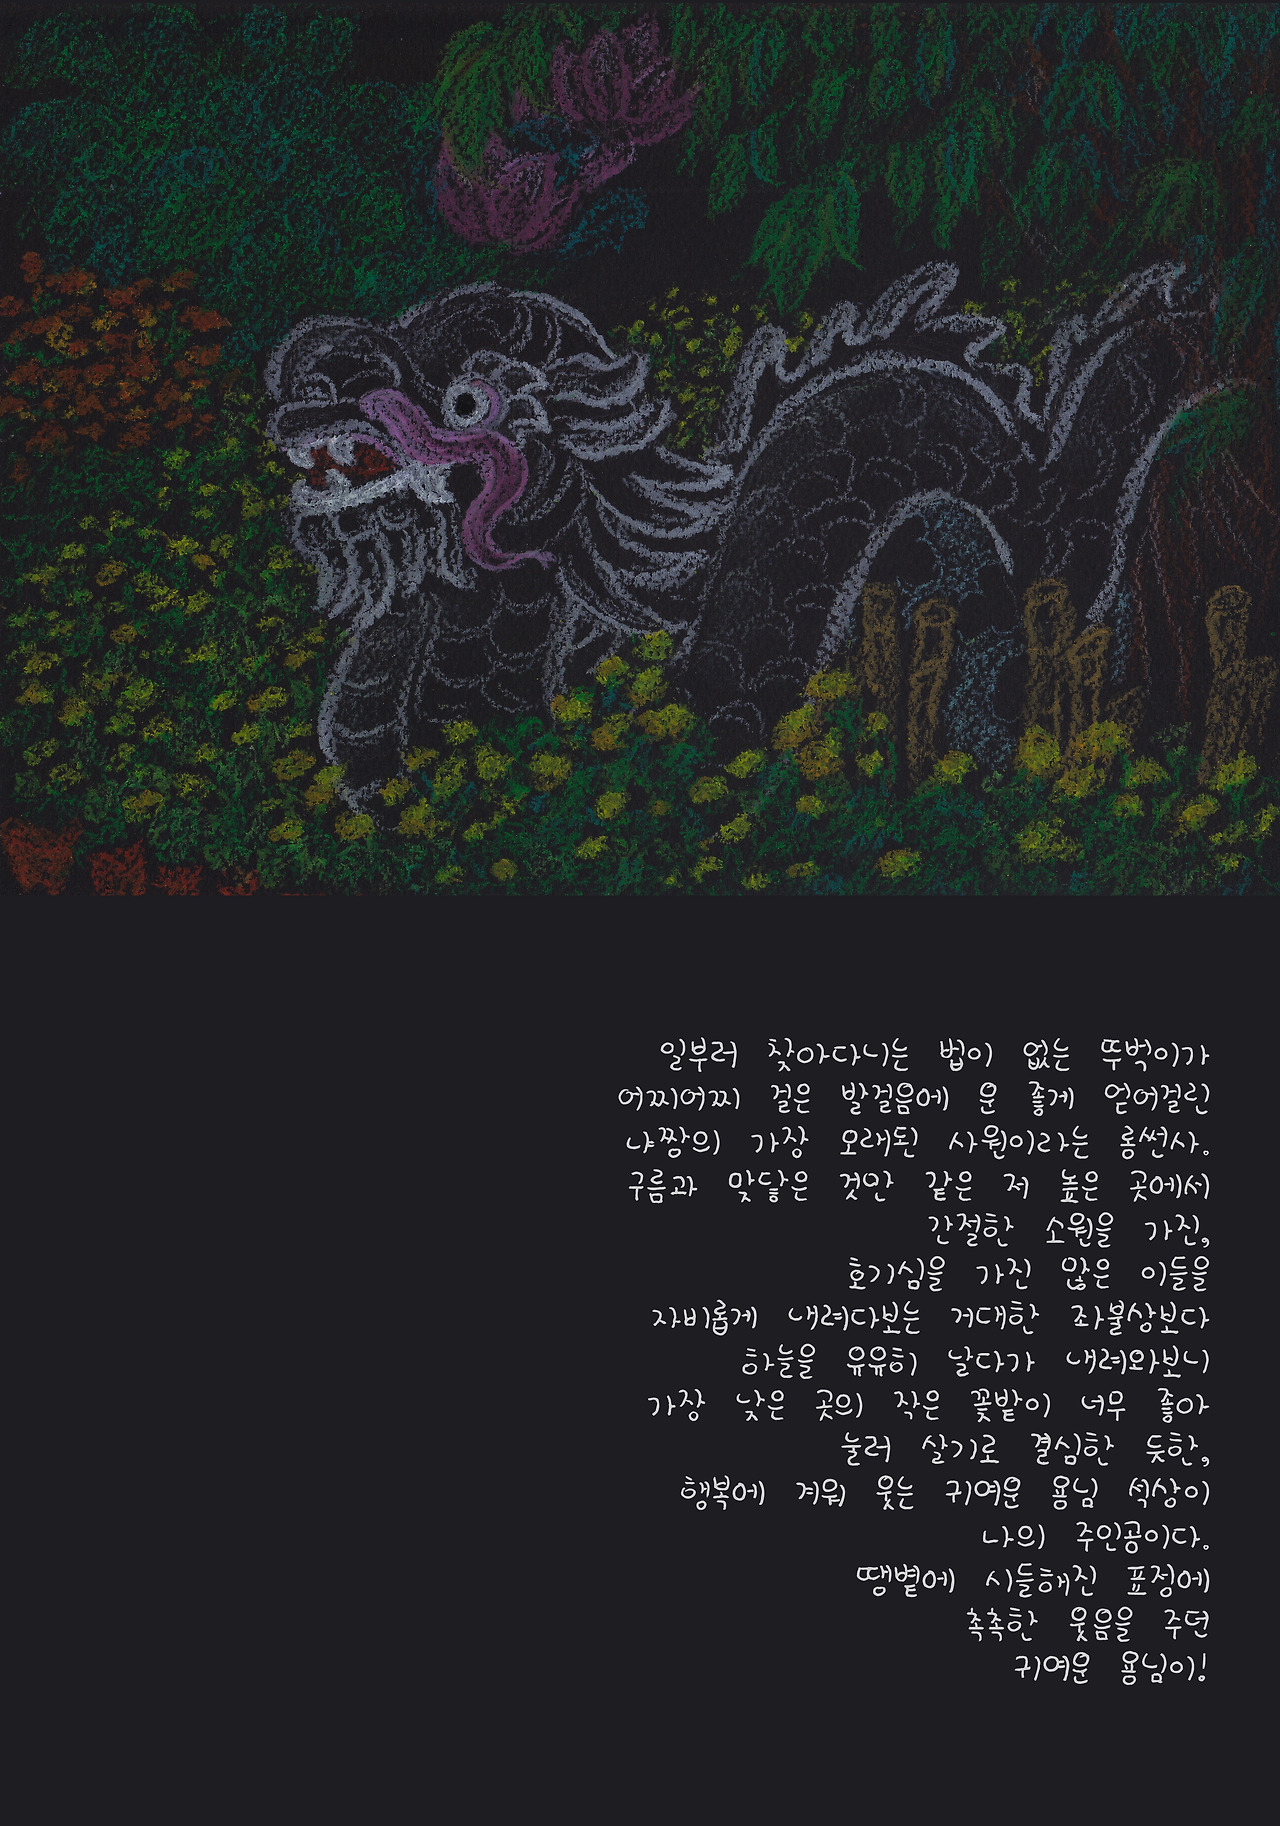 일부러 찾아다니는 법이 없는 뚜벅이가
어찌어찌 걸은 발걸음에 운 좋게 얻어걸린
냐짱의 가장 오래된 사원이라는 롱썬사.
구름과 맞닿은 것만 같은 저 높은 곳에서
간절한 소원을 가진,
호기심을 가진 많은 이들을
자비롭게 내려다보는 거대한 좌불상보다
하늘을 유유히 날다가 내려와보니
가장 낮은 곳의 작은 꽃밭이 너무 좋아
눌러 살기로 결심한 듯한,
행복에 겨워 웃는 귀여운 용님 석상이
나의 주인공이다.
땡볕에 시들해진 표정에
촉촉한 웃음을 주던
귀여운 용님이!